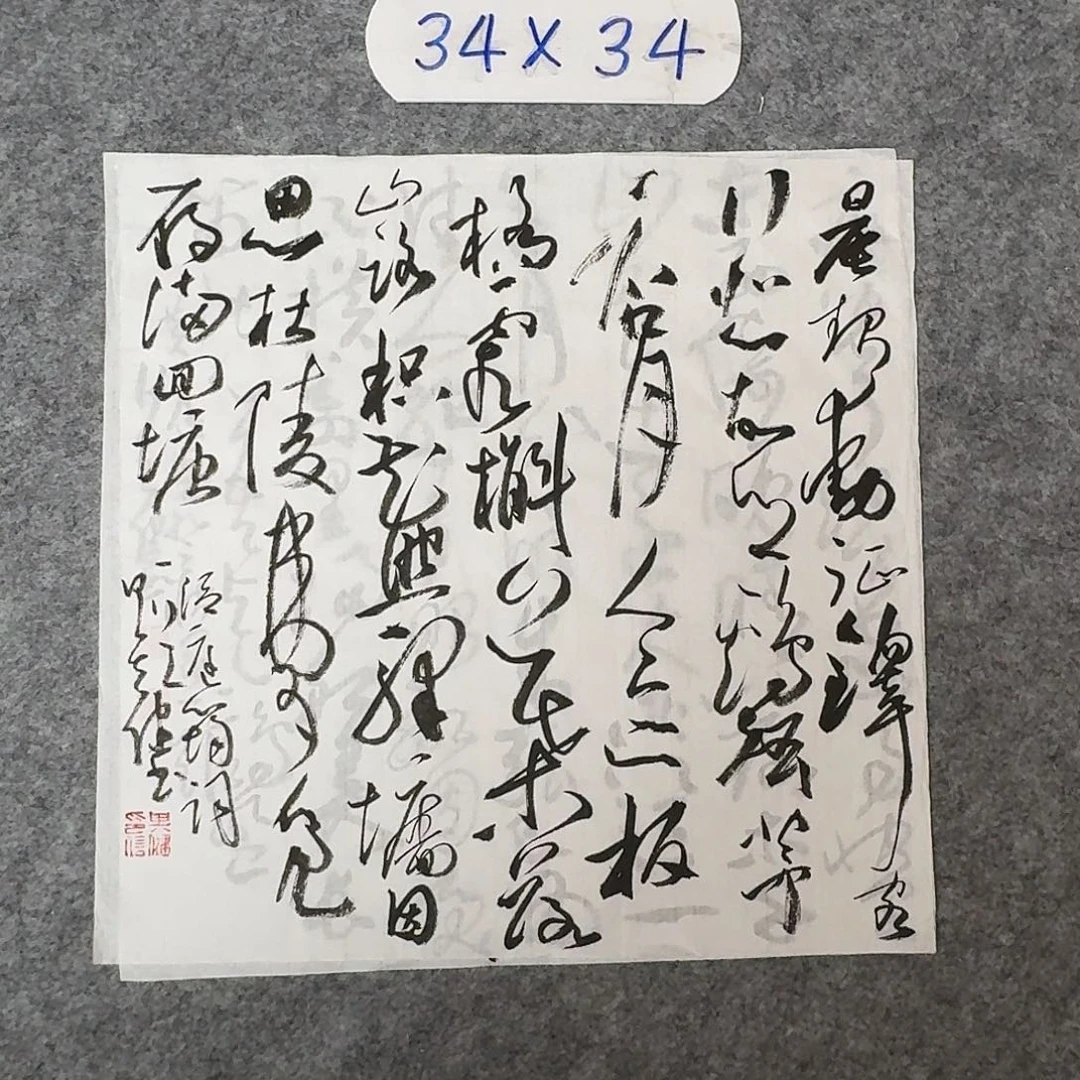 34X34
晨起動征鐸客
行悲故鄉鷄聲茅
店月人迹板
橋霜槲葉落
山路枳花照驛墻因
思杜陵夢鳧
雁滿回塘
温庭筠詞